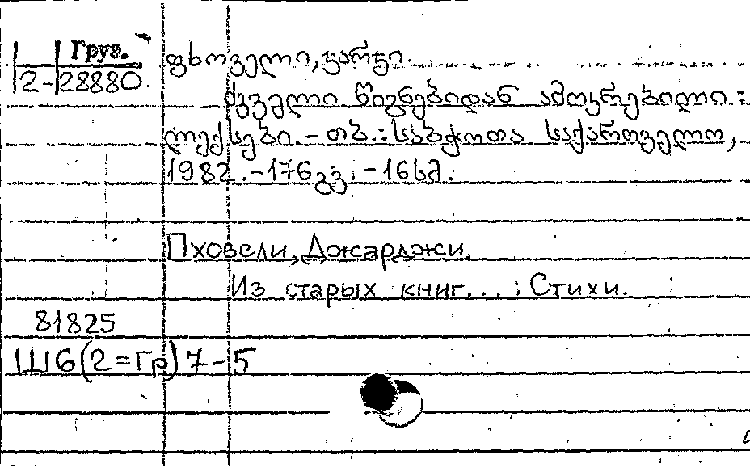 Груз.
2-28880.
ფხოველი, ჯარჯი.
ძველი წიგნებიდან ამოკრებილი :
ლექსები. - თბ. : საბჭოთა საქართველო,
1982. - 176 გვ. ; - 16 სმ.
Пховели, Джарджи.
Из старых книг... : Стихи.
81825
Ш6(2=Гр)7-5